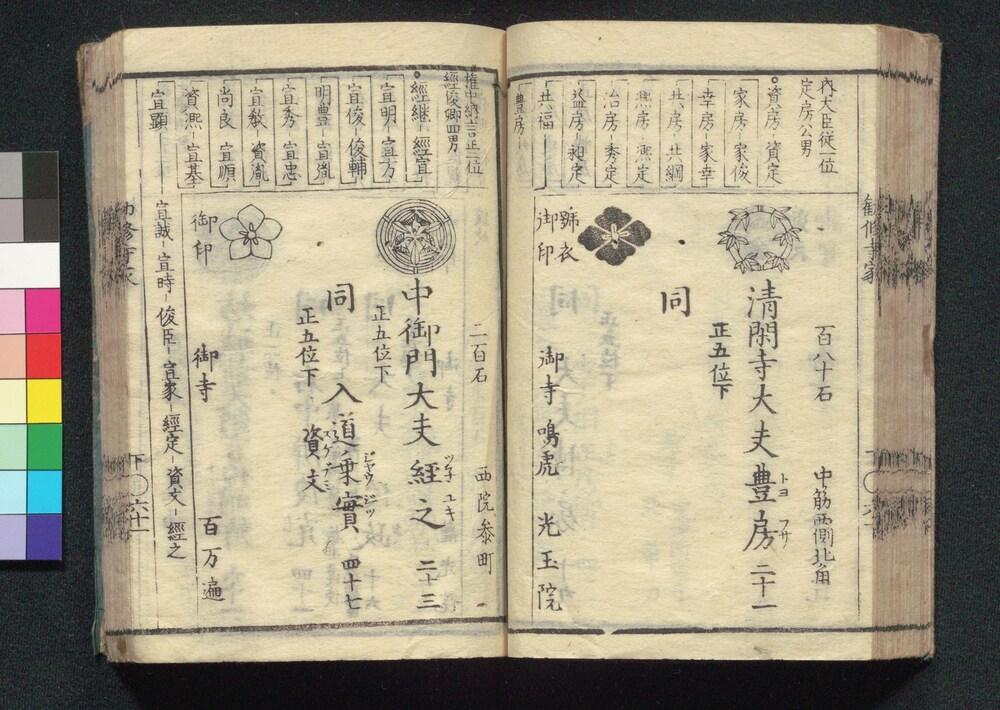 勧修寺家
内大臣従一位
定房公男
資房－資定
家房－家俊
幸房－家幸
共房－共綱
凞房－凞定
治房－秀定
益房－昶定
共福－
豊房－
百八十石
中筋西側北角
清閑寺大夫豊房 二十一
トヨ フサ
正五位下
同
號衣
御印
御寺 鳴虎 光玉院
権中納言正二位
経俊卿四男
經継－經宣
宣明－宣方
宣俊－俊輔
明豊－宣胤
宣秀－宣忠
宣教－資胤
尚良－宣順
資凞－宣基
宣顕－
宣誠－宣時－俊臣－宣家－經定－資文－經之
二百石
西院参町
中御門大夫經之 二十三
ツネ ユキ
正五位下
同 入道乗實 四十七
ジャウ ジツ
正五位下 資文
スケブミ
御印
御寺 百万遍
下 六十一